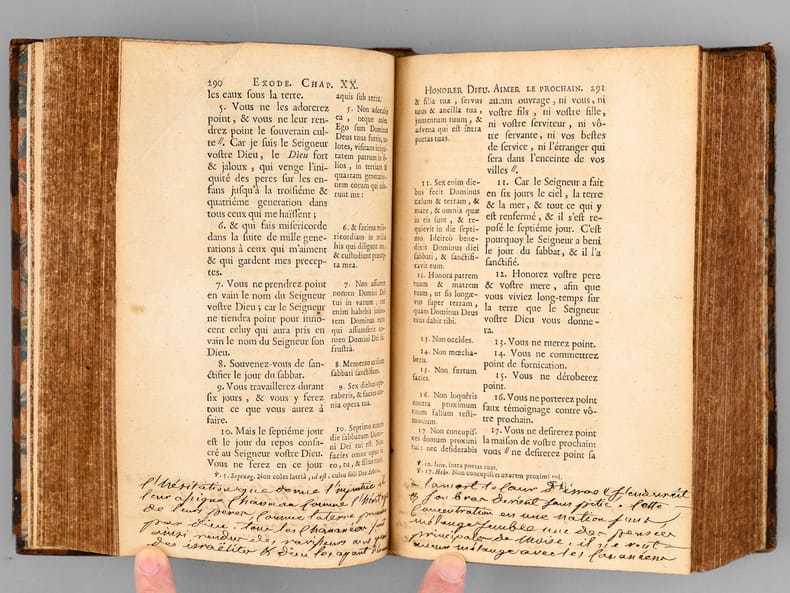 290 EXODE. CHAP. XX.
les eaux sous la terre.
5. Vous ne les adorerez
point, & vous ne leur ren-
drez point le souverain cul-
te //. Car je suis le Seigneur
vostre Dieu, le Dieu fort
& jaloux, qui venge l'ini-
quité des peres sur les en-
fans jusqu'à la troisiéme &
quatriéme generation dans
tous ceux qui me haïssent ;
6. & qui fais misericorde
dans la suite de mille gene-
rations à ceux qui m'aiment
& qui gardent mes precep-
tes.
7. Vous ne prendrez point
en vain le nom du Seigneur
vostre Dieu ; car le Seigneur
ne tiendra point pour inno-
cent celuy qui aura pris en
vain le nom du Seigneur son
Dieu.
8. Souvenez-vous de san-
ctifier le jour du sabbat.
9. Vous travaillerez durant
six jours, & vous y ferez
tout ce que vous aurez à
faire.
10. Mais le septiéme jour
est le jour du repos consa-
cré au Seigneur vostre Dieu.
Vous ne ferez en ce jour
aquis sub terra;
5. Non
ea, neque
Ego sum Dominus
Deus tuus fortis,
lotes, visitans
tatem patrum in
lios, in tertiam &
quartam generatio-
nem eorum qui
runt me:
6. & faciens
ricordiam in
his qui diligunt
& custodiunt
ta mea.
7. Non
nomen Domini Dei
tui in vanum:
enim habebit
tem Dominus
qui assumserit
men Domini Dei
frustrà.
8. Memento
sabbati sanctifices.
9. Sex diebus
raberis, & facies
nia opera tua.
10. Septimo
die sabbatum
ni Dei tui est. Non
facies omne opus in
eo, tu, & filius
℣. 5. Septuag. Non coles latriâ, id est, cultu soli Deo
HONORER DIEU. AIMER LE PROCHAIN. 291
& filia tua, servus
tuus & ancilla tua,
jumentum tuum, &
advena qui est intra
portas tuas.
11. Sex enim die-
bus fecit Dominus
cælum & terram, &
mare, & omnia quæ
in eis sunt, & re-
quievit in die septi-
mo. Idcircò bene-
dixit Dominus diei
sabbati, & sanctifi-
cavit eum.
12. Honora patrem
tuum & matrem
tuam, ut sis longæ-
vus super terram,
quam Dominus Deus
tuus dabit tibi.
13. Non occides.
14. Non mœcha-
beris.
15. Non furtum
facies.
16. Non loquêris
contra proximum
tuum falsum testi-
monium.
17. Non concupis-
ces domum proximi
tui: nec desiderabis
aucun ouvrage, ni vous, ni
vostre fils, ni vostre fille,
ni vostre serviteur, ni vô-
tre servante, ni vos bestes
de service, ni l'étranger qui
sera dans l'enceinte de vos
villes //.
11. Car le Seigneur a fait
en six jours le ciel, la terre
& la mer, & tout ce qui y
est renfermé, & il s'est re-
posé le septiéme jour. C'est
pourquoy le Seigneur a beni
le jour du sabbat, & il l'a
sanctifié.
12. Honorez vostre pere
& vostre mere, afin que
vous viviez long-temps sur
la terre que le Seigneur
vostre Dieu vous donne-
ra.
13. Vous ne tuerez point.
14. Vous ne commettrez
point de fornication.
15. Vous ne déroberez
point.
16. Vous ne porterez point
faux témoignage contre vô-
tre prochain.
17. Vous ne desirerez point
la maison de vostre prochain:
vous // ne desirerez point sa
℣. 10. lettr. intra portas tuas.
℣. 17. Hebr. Non concupisces uxorem proximi tui.
l'hesitation que donne l'injustice
de leurs peres comme la terre
par dieu. tous les Chananéens
ainsi rendus des ravisseurs aux yeux
des israélites & dieu les ayant
à la mort le cœur d'israel s'endurcit
& son bras devient sans pitié. Cette
concentration en une nation sans
mélange semble une des pensées
principales de Moïse, il ne veut
aucun mélange avec les Cananéens